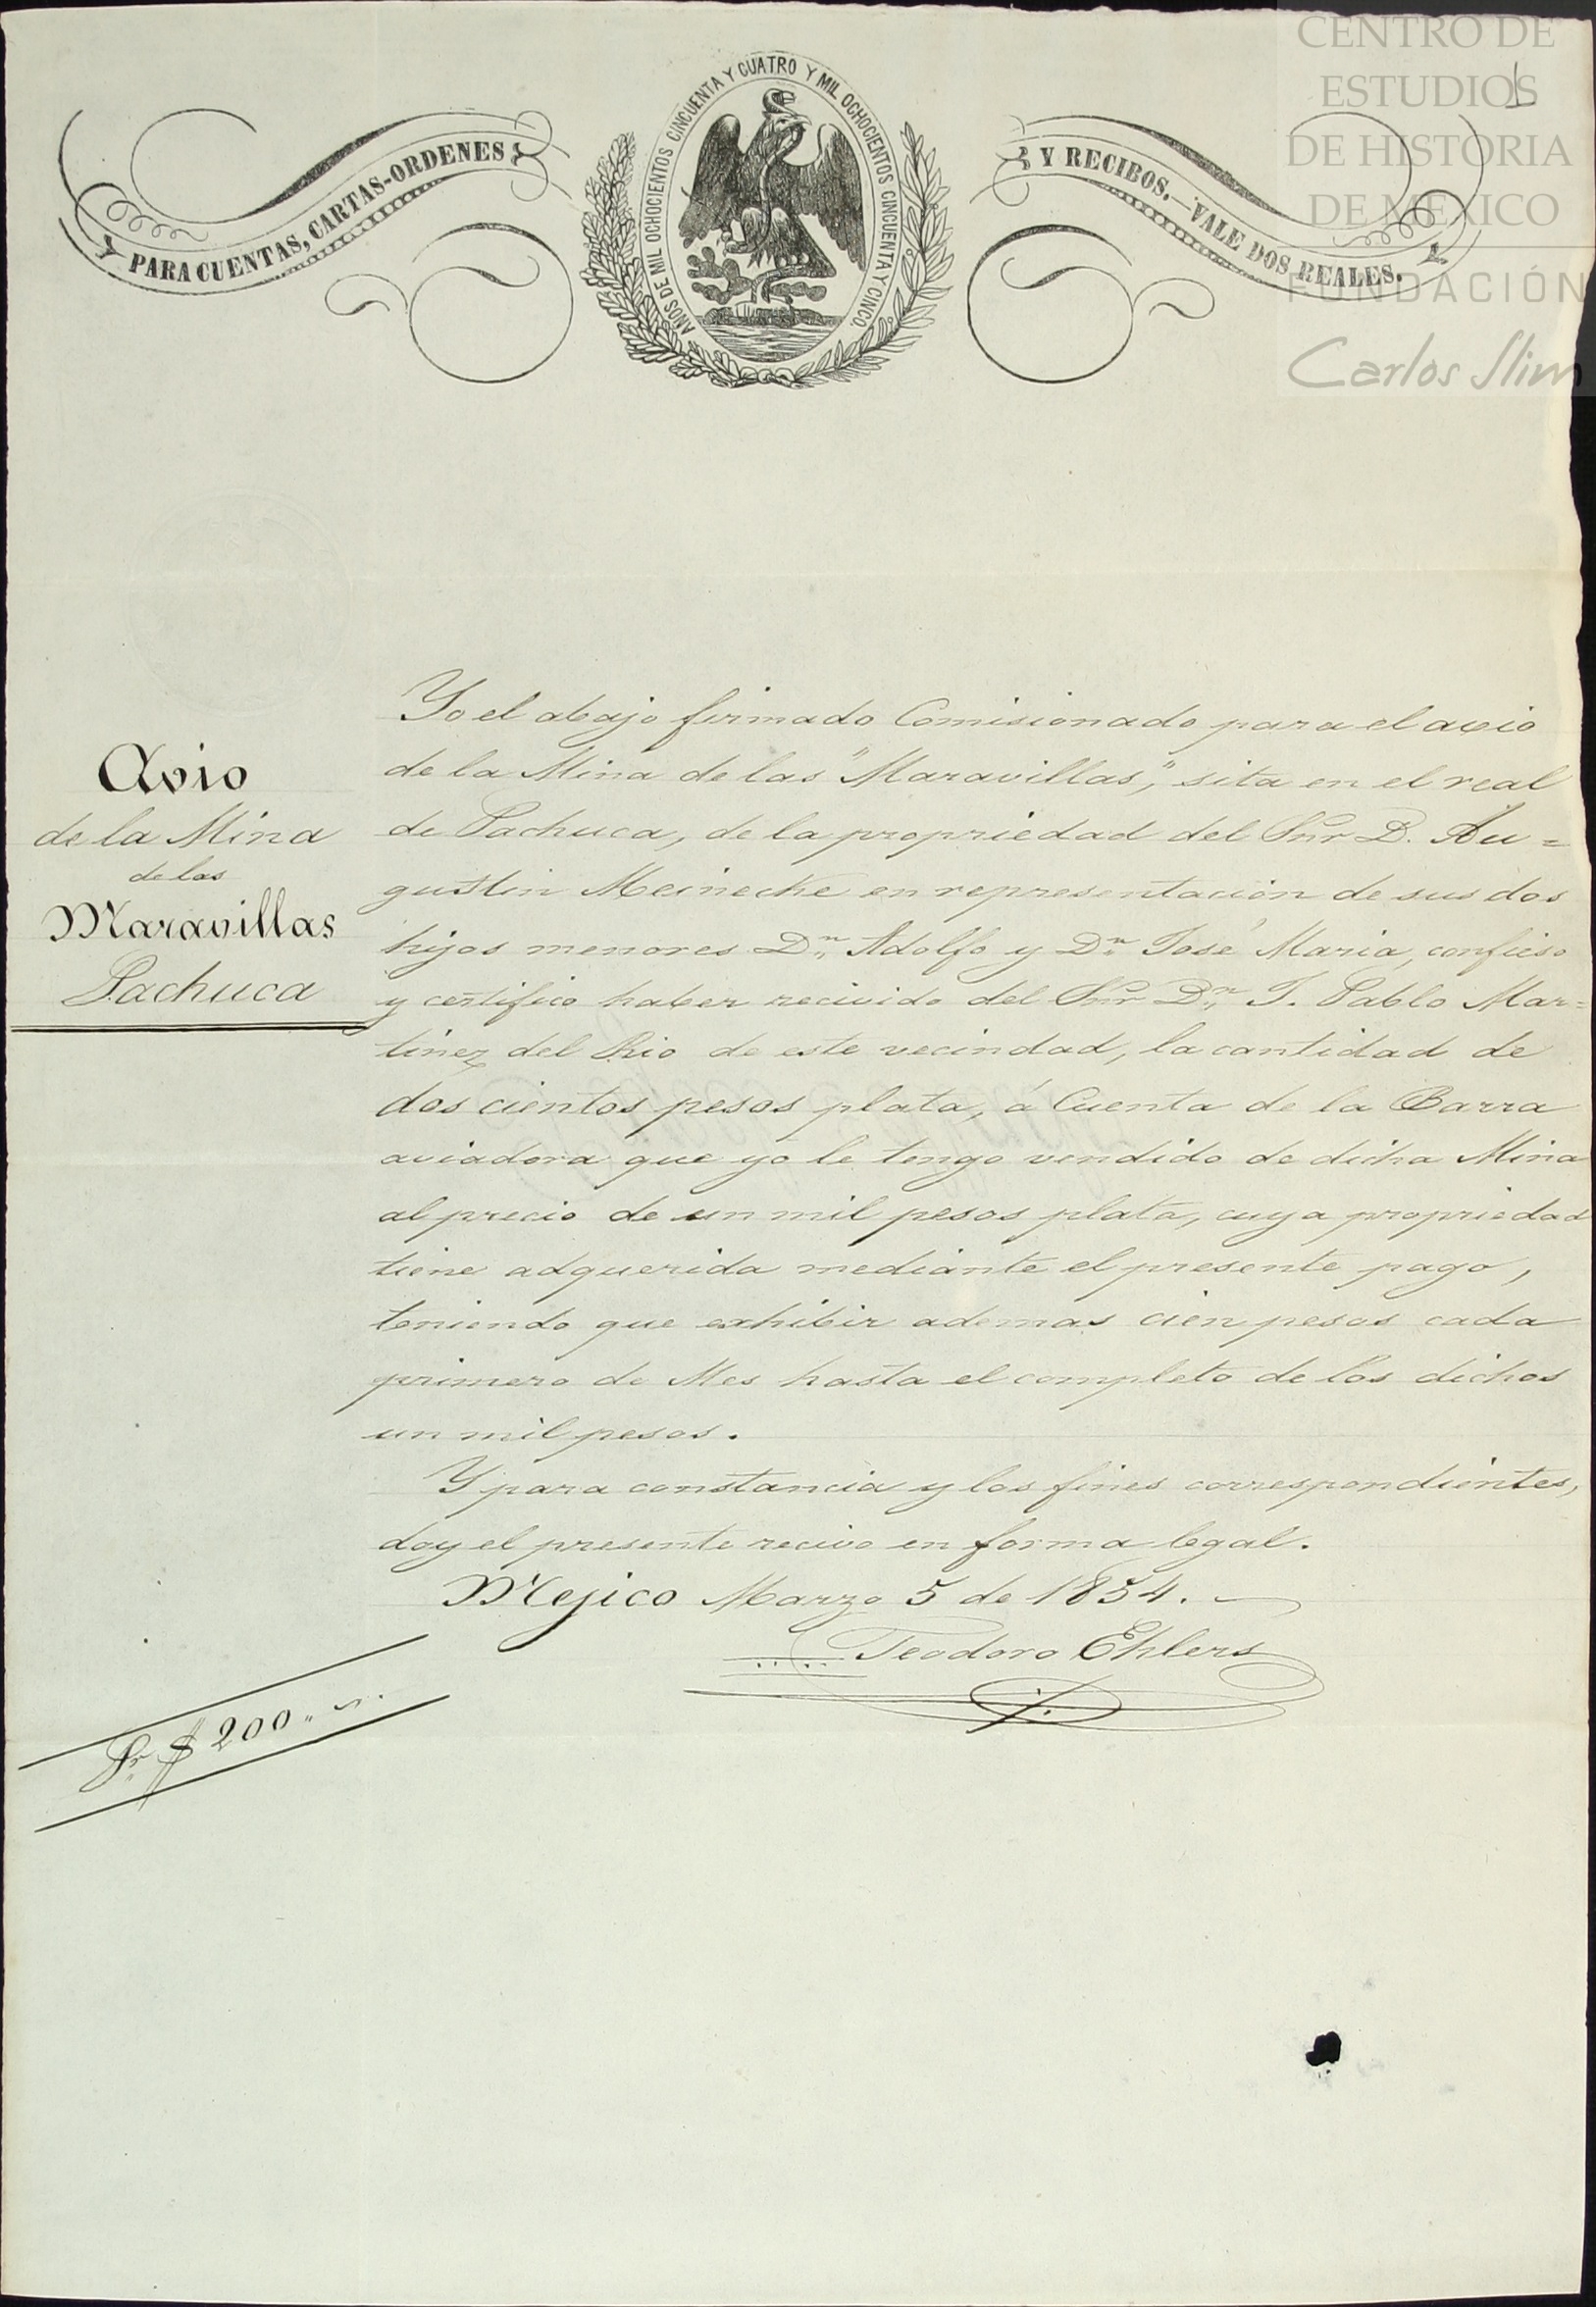 CENTRO DE
ESTUDIOS
DE HISTORIA
DE MEXICO
FUNDACIÓN
Carlos Slim
1
PARA CUENTAS, CARTAS-ORDENES
AÑOS DE MIL OCHOCIENTOS CINCUENTA Y CUATRO Y MIL OCHOCIENTOS CINCUENTA Y CINCO.
Y RECIBOS.—VALE DOS REALES.
Avio
de la Mina
de las
Maravillas
Pachuca
Yo el abajo firmado Comisionado para el avio
de la Mina de las "Maravillas", sita en el real
de Pachuca, de la propriedad del Snr D. Au=
gustin Meinecke en representación de sus dos
hijos menores Dn. Adolfo y Dn. José Maria, confieso
y certifico haber recivido del Snr Dn. J. Pablo Mar=
tinez del Rio de este vecindad, la cantidad de
dos cientos pesos plata, á Cuenta de la Barra
aviadora que yo le tengo vendido de dicha Mina
al precio de un mil pesos plata, cuya propriedad
tiene adquerida mediante el presente pago,
teniendo que exhibir ademas cien pesos cada
primero de Mes hasta el completo de los dichos
un mil pesos.
Y para constancia y los fines correspondientes,
doy el presente recivo en forma legal.
Mejico Marzo 5 de 1854.
Teodoro Ehlers
Pr. $ 200